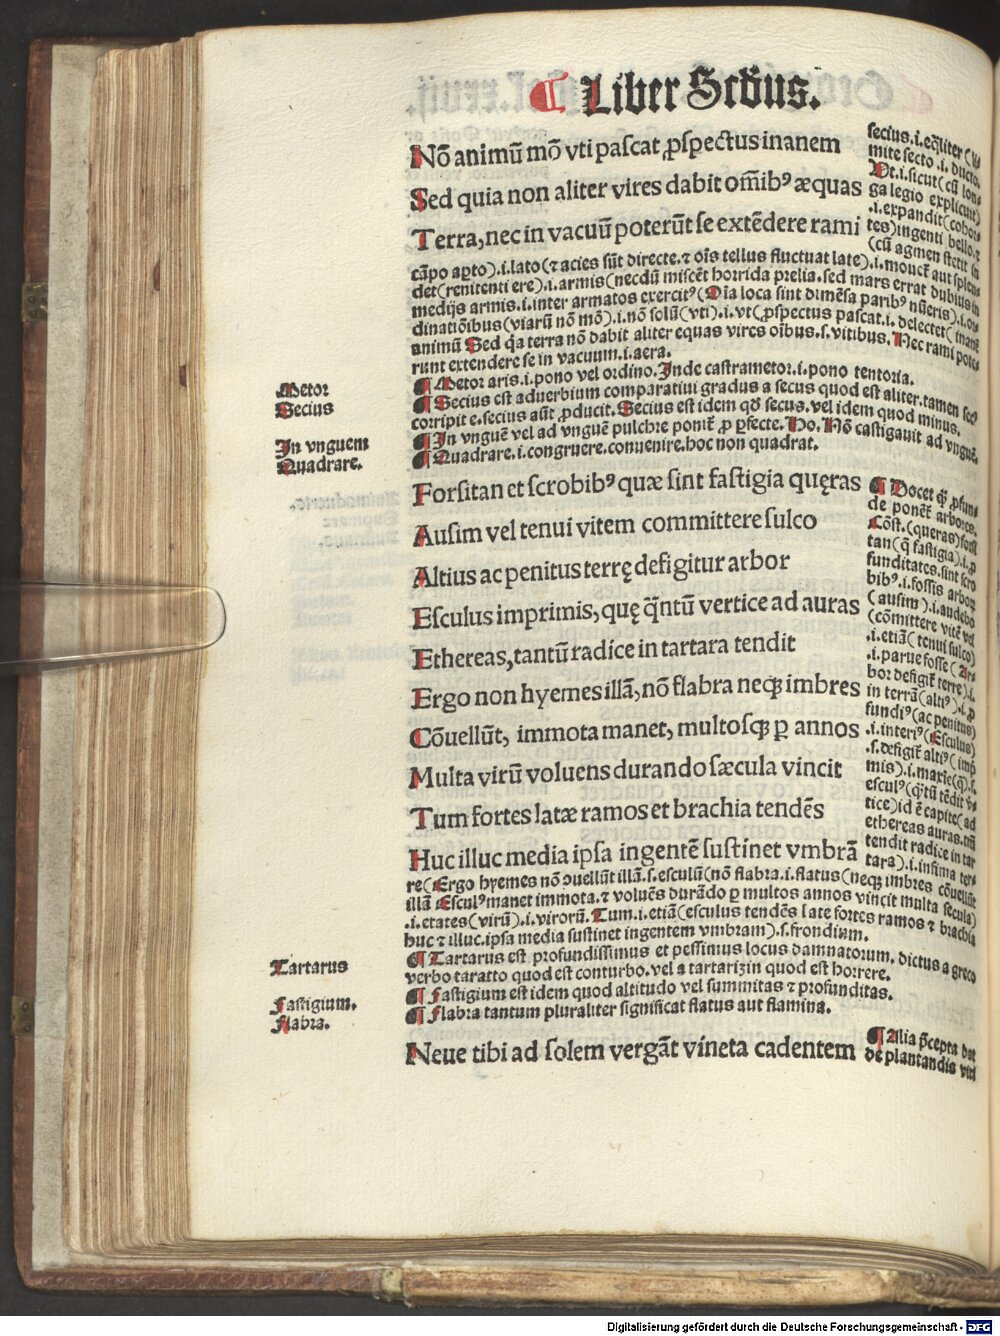 ¶ Liber Scđus.
Nō animū mō vti pascat ꝓspectus inanem
Sed quia non aliter vires dabit om̄ibꝰ æquas
Terra, nec in vacuū poterūt se extēdere rami
secius .i. eq̄liter (li
mite secto .i. ducto.
Ut .i. sicut (cū lon-
ga legio explicuit)
.i. expandit (cohor-
tes) ingenti bello, ⁊
(cū agmen stetit in
cāpo apto) .i. lato (⁊ acies sūt directe. ⁊ oīs tellus fluctuat late) .i. mouet᷑ aut splen
det (renitenti ere) .i. armis (necdū miscēt horrida prelia. sed mars errat dubius in
medijs armis .i. inter armatos exercitꝰ (Oīa loca sint dimēsa paribꝰ nūeris) .i. or-
dinatiōibus (viarū nō mō) .i. nō solū (vti) .i. vt (ꝓspectus pascat .i. delectet (inanē
animū Sed q̄a terra nō dabit aliter equas vires oībus .s. vitibus. Nec rami pote
runt extendere se in vacuum .i. aera.
Metor
¶ Metor aris .i. pono vel ordino. Inde castrametor .i. pono tentoria.
Secius
¶ Secius est aduerbium comparatiui gradus a secus quod est aliter. tamen secꝰ
corripit e. secius aūt ꝓducit. Secius est idem qd̄ secus. vel idem quod minus.
In vnguem
¶ In vnguē vel ad vnguē pulchre ponit᷑ ꝓ ꝑfecte. Ho. Nō castigauit ad vnguē.
Quadrare.
¶ Quadrare .i. congruere. conuenire. hoc non quadrat.
Forsitan et scrobibꝰ quæ sint fastigia quęras
Ausim vel tenui vitem committere sulco
Altius ac penitus terrę defigitur arbor
Esculus imprimis, quę q̄ntū vertice ad auras
Ethereas, tantū radice in tartara tendit
Ergo non hyemes illā, nō flabra neqꝫ imbres
Cōuellūt, immota manet, multosqꝫ ꝑ annos
Multa virū voluens durando sæcula vincit
Tum fortes latæ ramos et brachia tendēs
Huc illuc media ipsa ingentē sustinet vmbrā
¶ Docet q̄ ꝓfun-
de ponēt᷑ arbores.
Cōst. (queras) forsi
tan (q̄ fastigia) .i. ꝓ
funditates. sint scro
bibꝰ .i. fossis arboꝝ
(ausim) .i. audebo
(cōmittere vitē vel
.i. etiā (tenui sulco)
.i. parue fosse (Ar-
bor defigit᷑ terre) .i.
in terrā (altiꝰ) .i. ꝓ
fundiꝰ (ac penitus)
.i. interiꝰ (Esculus)
.s. defigit᷑ altiꝰ (imp
mis) .i. maxīe (q̄) .s.
esculꝰ (q̄tū tēdit v̄
tice) id ē capite (ad
ethereas auras. tm̄
tendit radice in tar
tara) .i. infima ter-
re (Ergo hyemes nō ꝯuellūt illā .s. esculū (nō flabra .i. flatus (neqꝫ imbres cōuellūt
illā Esculꝰ manet immota. ⁊ voluēs durādo ꝑ multos annos vincit multa secula)
.i. etates (virū) .i. virorū. Tum .i. etiā (esculus tendēs late fortes ramos ⁊ brachia
huc ⁊ illuc. ipsa media sustinet ingentem vmbram) .s. frondium.
Tartarus
¶ Tartarus est profundissimus et pessimus locus damnatorum. dictus a greco
verbo taratto quod est conturbo. vel a tartarizin quod est horrere.
Fastigium.
¶ Fastigium est idem quod altitudo vel summitas ⁊ profunditas.
Flabra.
¶ Flabra tantum pluraliter significat flatus aut flamina.
Neue tibi ad solem vergāt vineta cadentem
¶ Alia p̄cepta dat
de plantandis viti
Digitalisierung gefördert durch die Deutsche Forschungsgemeinschaft - DFG